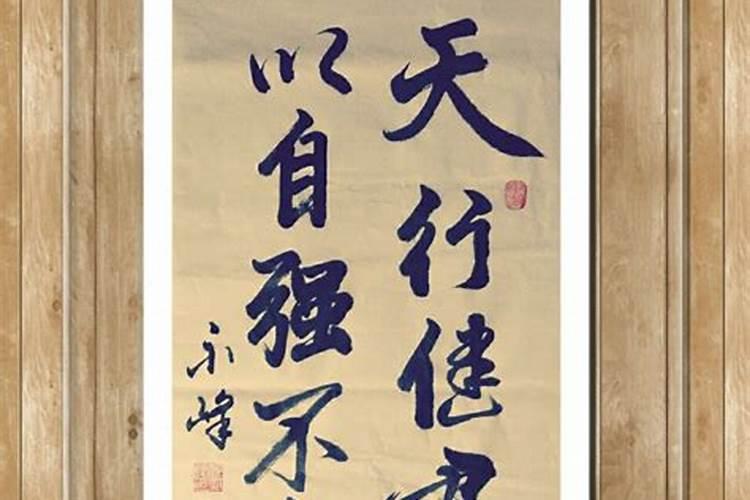 天行健君
以自强不
永峰